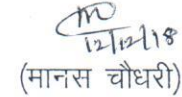 12/12/18
(मानस चौधरी)